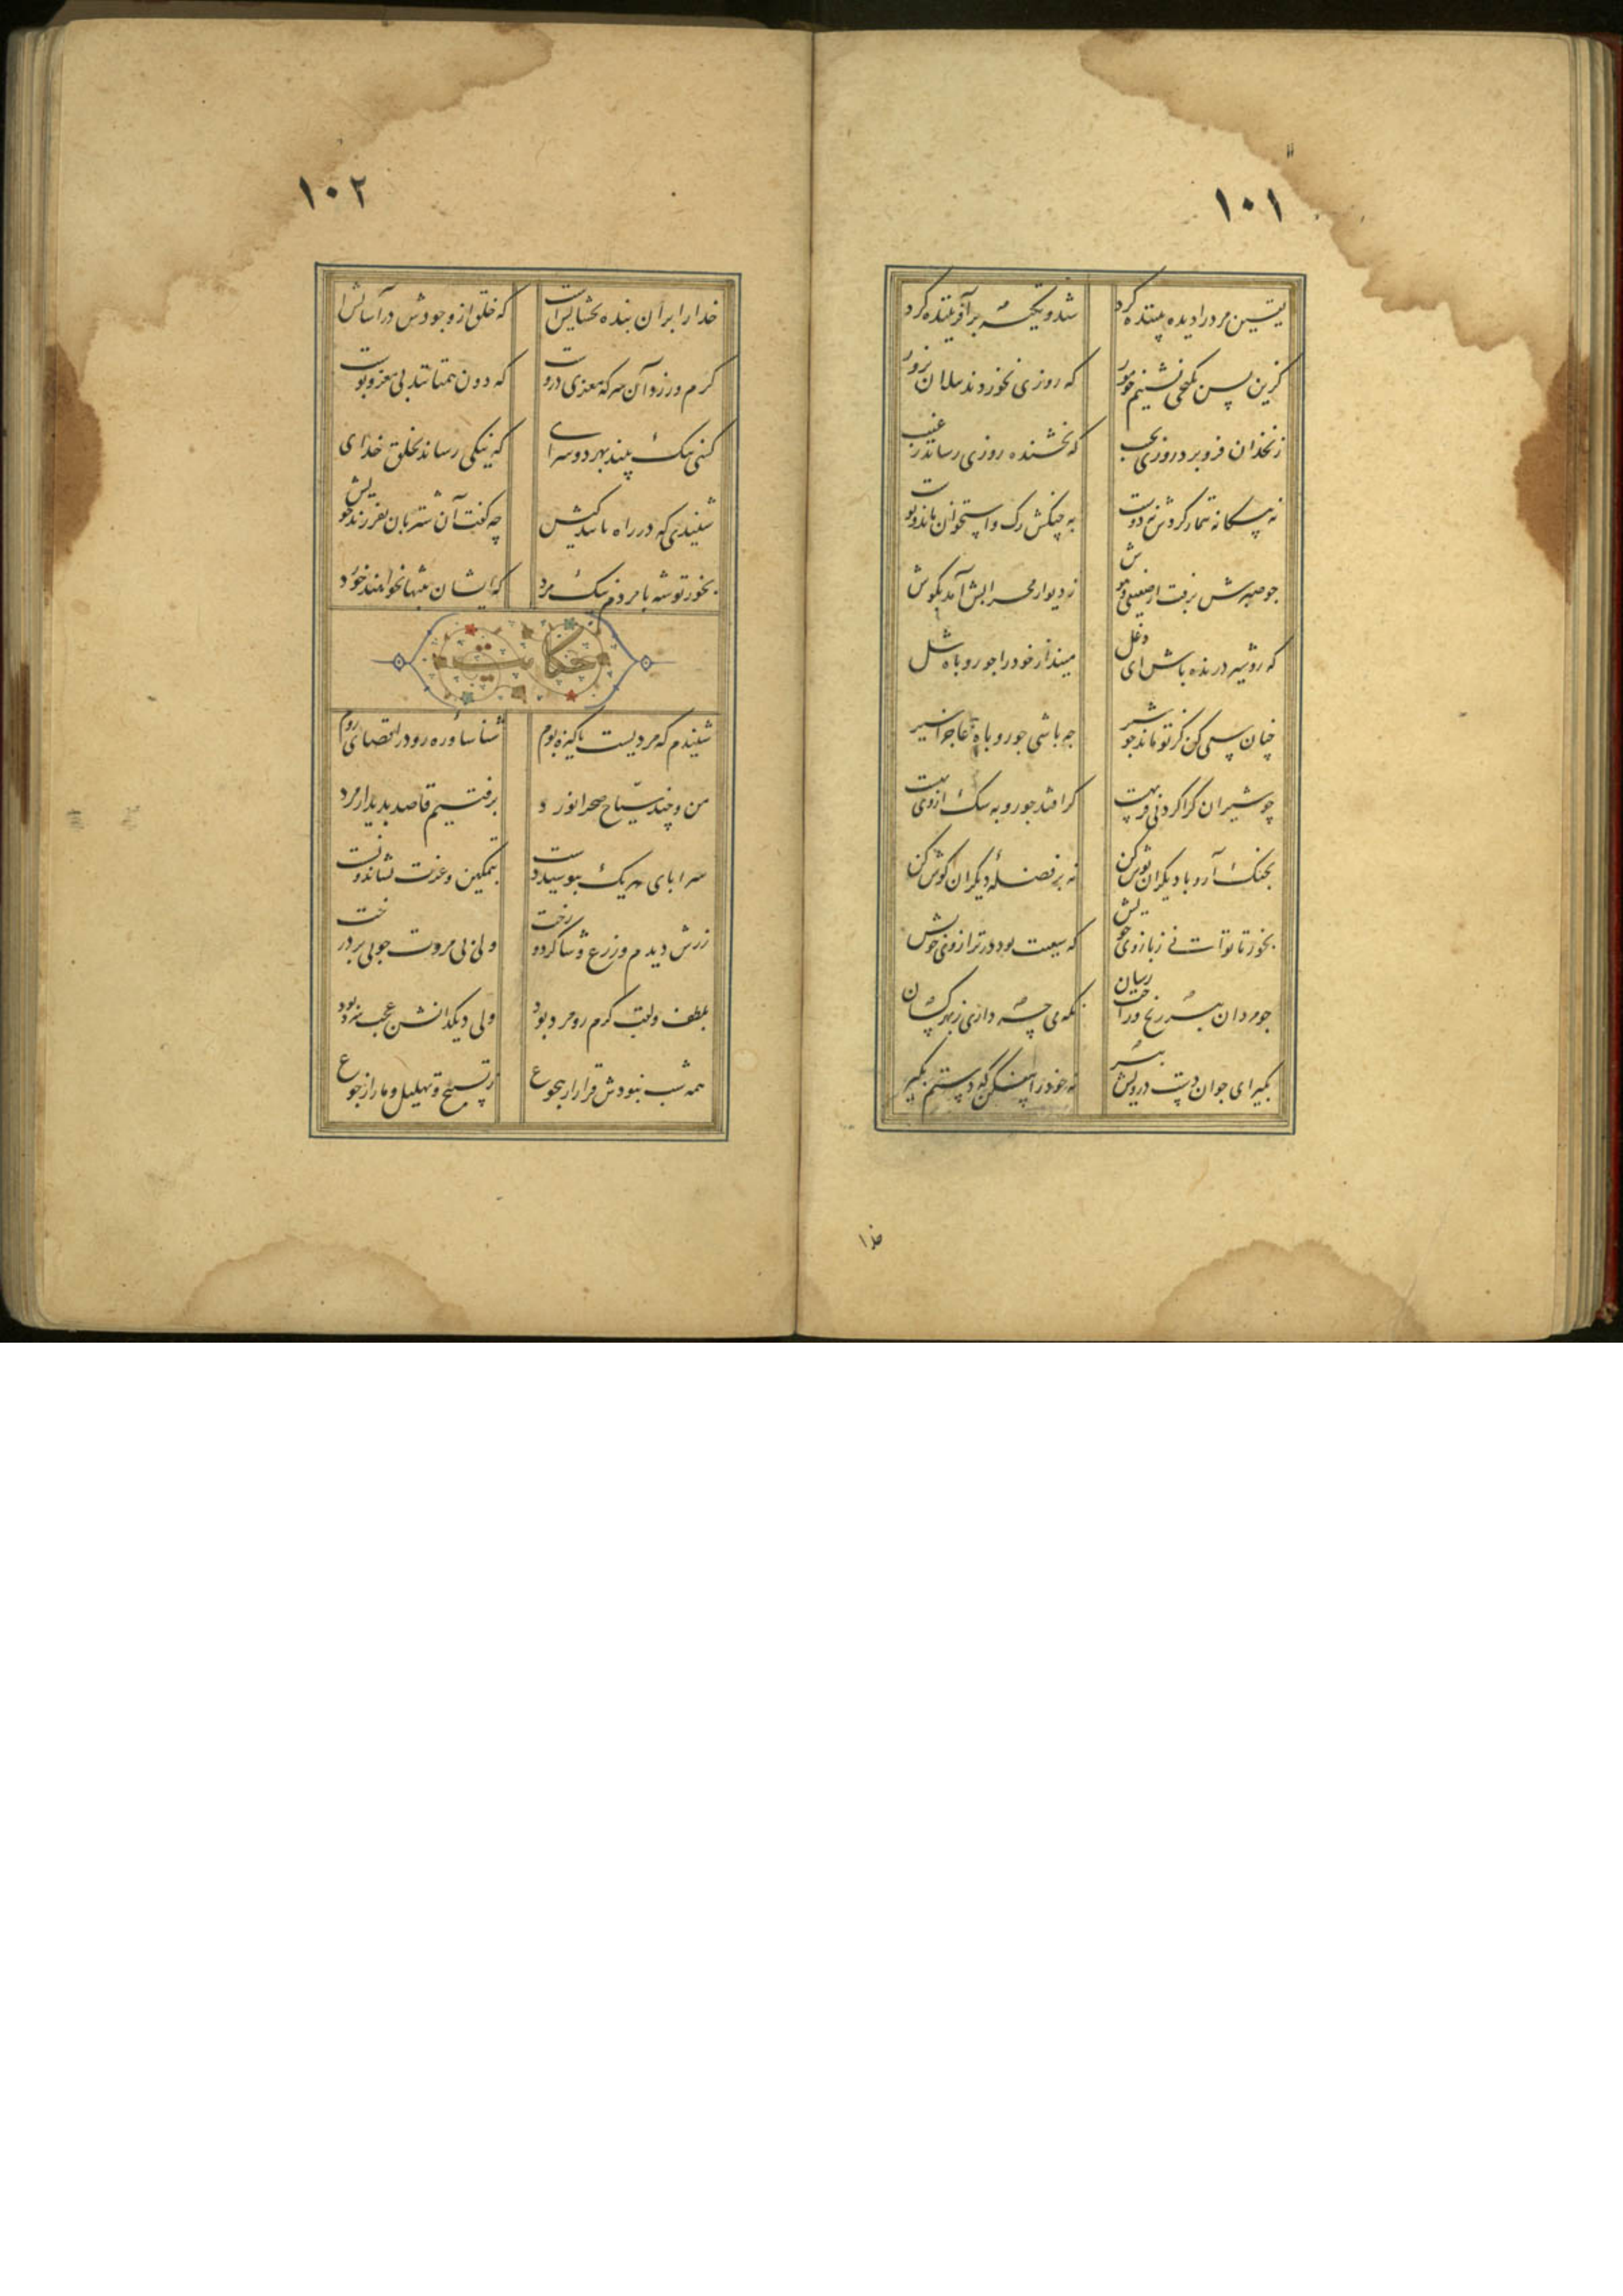 ۱۰۱
یقین مرد را دیده بیننده کرد شد و تکیه بر آفریننده کرد
کزین پس بکنجی نشینم چو مور که روزی نخوردند پیلان بزور
زنخدان فرو برد روزی بجیب که بخشنده روزی رساند ز غیب
نه بیگانه تیمار کردش نه دوست چو چنگش رگ و استخوان ماند و پوست
جو صبرش نرفت از ضعیفی و هوش ز دیوار محرابش آمد بگوش
که رو شیر درنده باش ای دغل میندار خود را جو روباه شل
چنان سعی کن کز تو ماند جو شیر چه باشی جو روباه
چو شیر آن کرا کردنی فربهست کر افتد جو روبه سک از وی بهست
بجنک آر و با دیکران نوش کن نه بر فضله دیکران کوش کن
بخور تا توانی ز بازوی خویش که سعیت بود در ترازوی خویش
جو مردان ببر رنج و راحت رسان
بکیر ای جوان دست درویش پیر نه خود را بیفکن که دستم بکیر
خدا
۱۰۲
خدا را بر آن بنده بخشایش است که خلق از وجودش در آسایش است
کرم ورزد آن سر که مغزی دروست که دون همتانند بی مغز و پوست
کسی نیک بیند بهر دو سرای که نیکی رساند بخلق خدای
شنیدی که در راه چه کفت آن شتربان بفرزند خویش
بخور توشه با مردم نیک مرد که ایشان بتنها نخواهند خورد
حکایت
شنیدم که مردیست پاکیزه بوم شناسا و ره رو در اقصای روم
من و چند سیاح صحرا نورد برفتیم قاصد بدیدار مرد
سراپای هر یک ببوسید و دست بتمکین و عزت نشاند و نشست
زرش دیدم و زرع و شاکرد و رخت ولی بی مروت جو بی بر درخت
بلطف و لبق کرم رو مرد بود ولی دیکدانش عجب سرد بود
همه شب نبودش قرار از هجوع ز تسبیح و تهلیل و ما را ز جوع